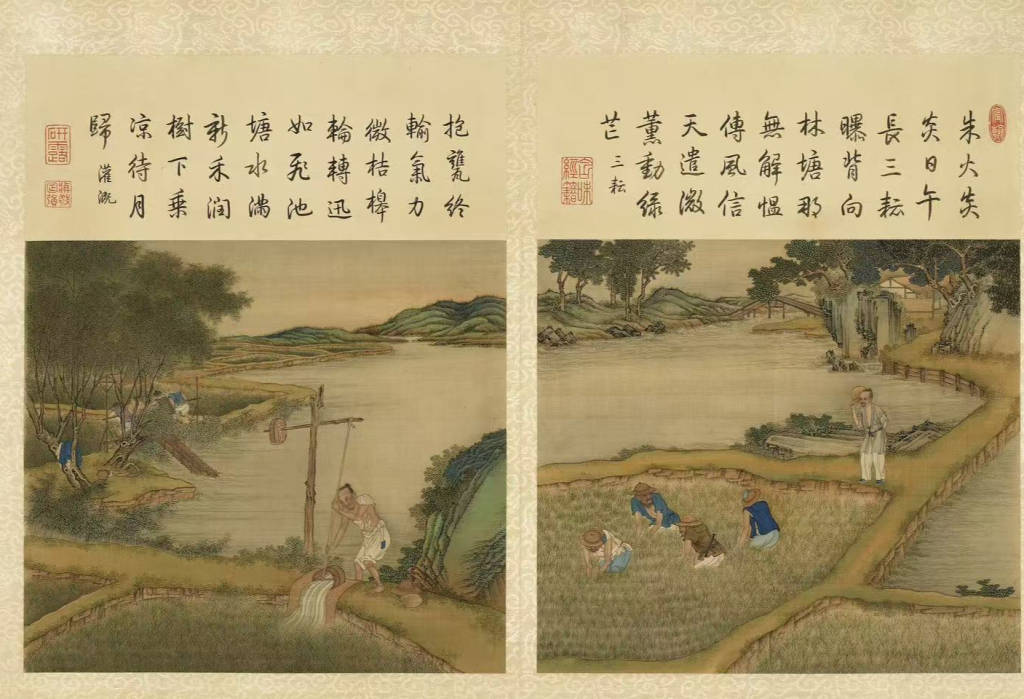 朱火炎
炎日午
長三耘
曝背向
林塘那
無解慍
傳風信
天遣微
薰動綠
芒
三耘
抱甕終
輸氣力
微桔槹
輪轉迅
如飛池
塘水滿
新禾潤
樹下乘
凉待月
歸
灌溉